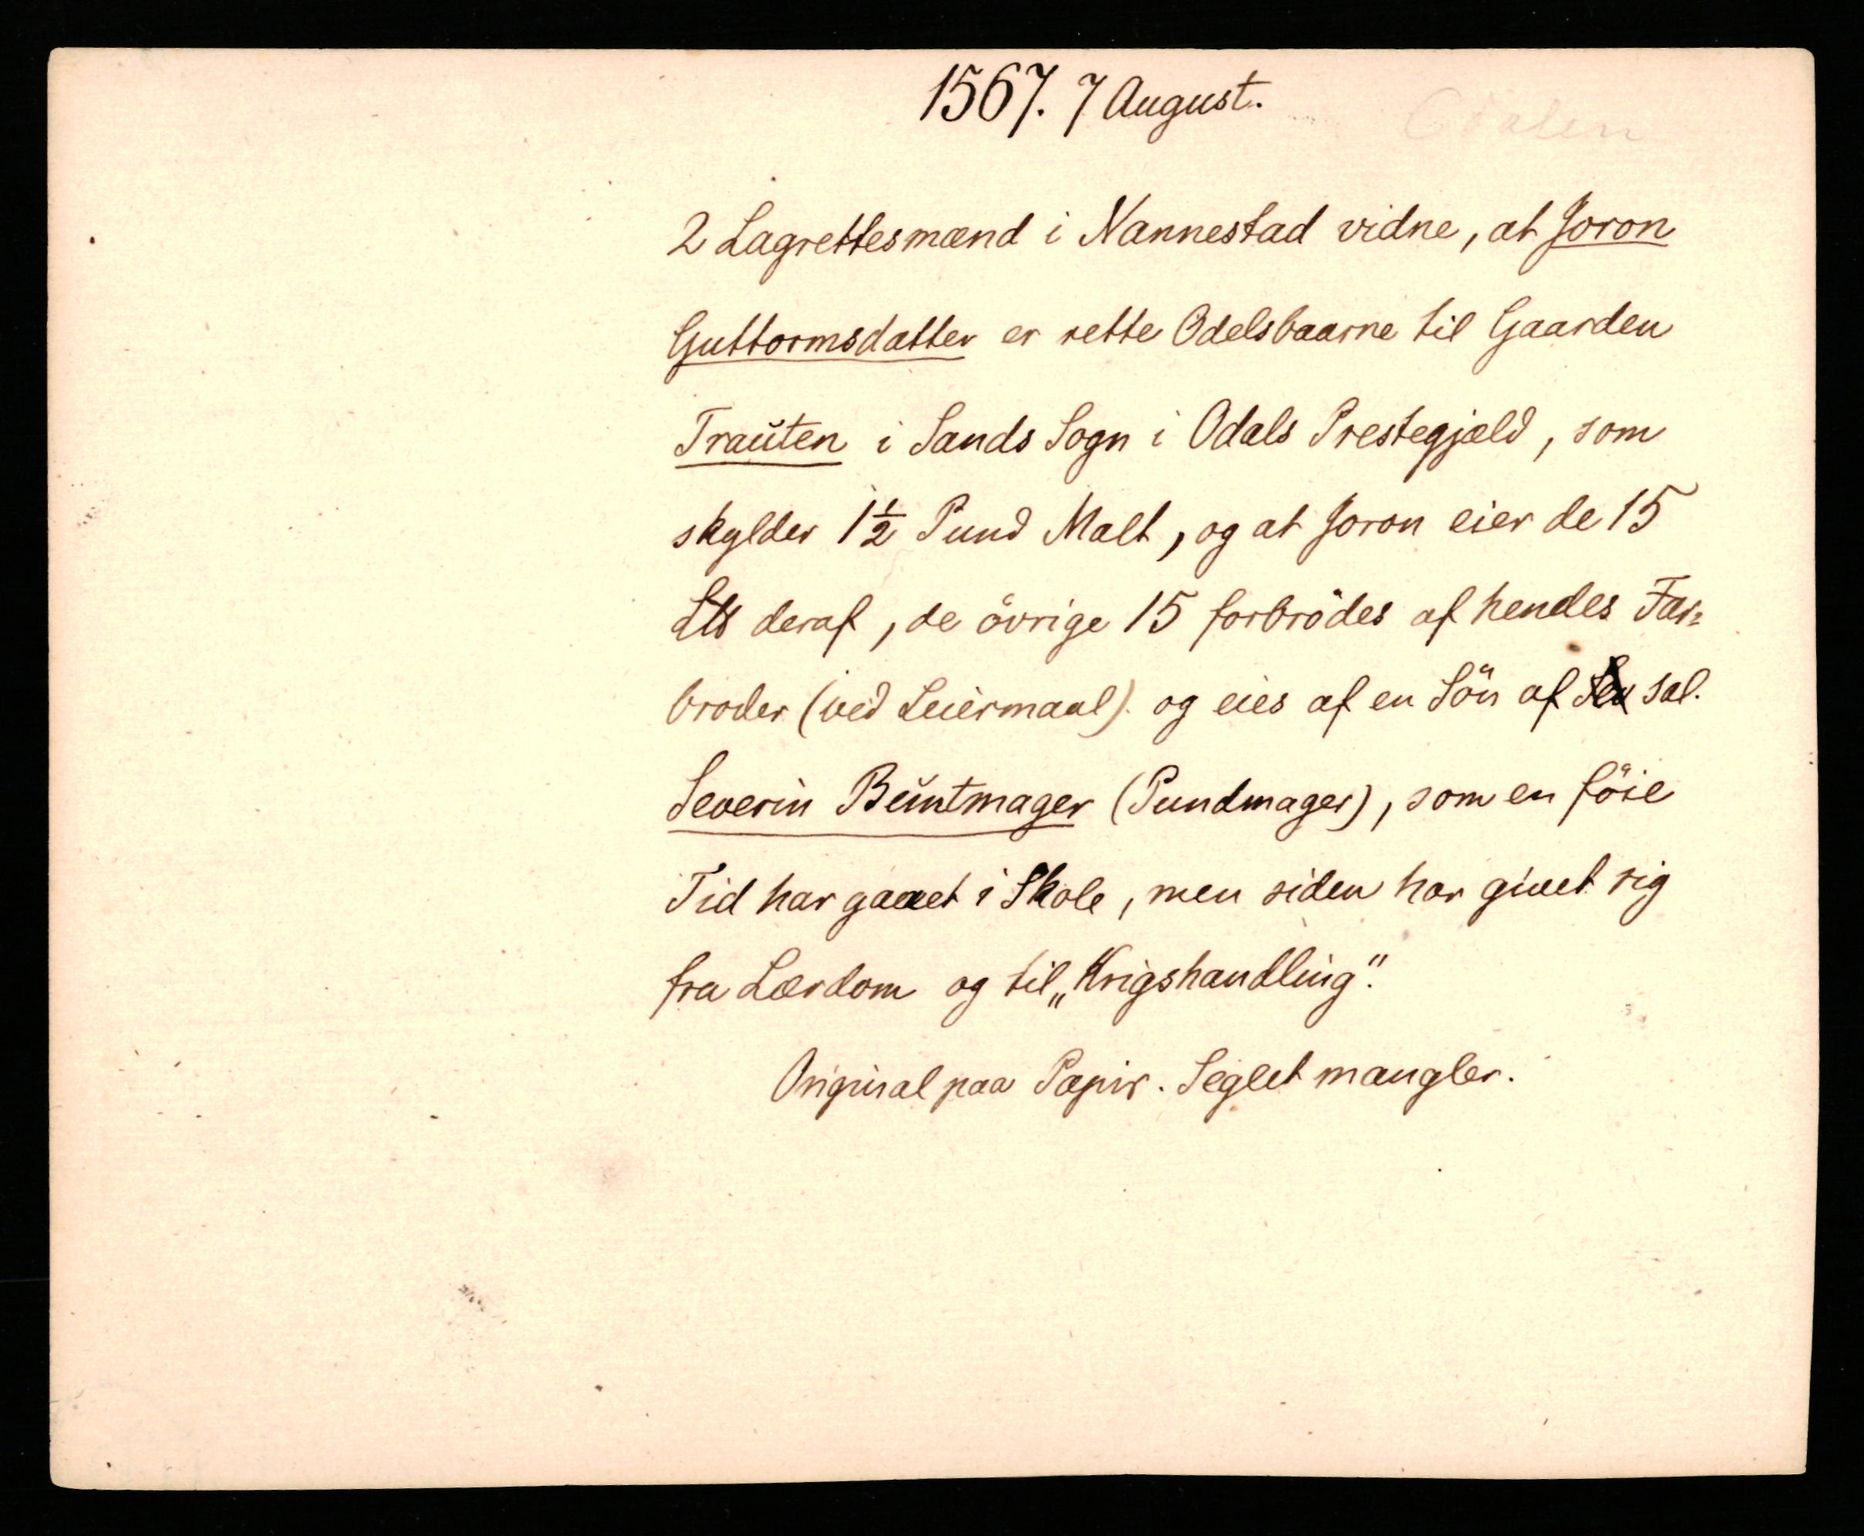 1567. 7 August.
Odalen
2 Lagrettesmænd i Nannestad vidne, at Joron
Guttormsdatter er rette Odelsbaarne til Gaarden
Traŭten i Sands Sogn i Odals Prestegjæld, som
skylder 1½ Pund Malt, og at Joron eier de 15
deraf, de övrige 15 forbrödes af hendes Far-
broder (ved Leiermaal) og eies af en Sön af sal.
Severin Bŭntmager (Pundmager), som en föie
Tid har gaaet i Skole, men siden har givet sig
fra Lærdom og til „Krigshandling".
Original paa Papir. Seglet mangler.